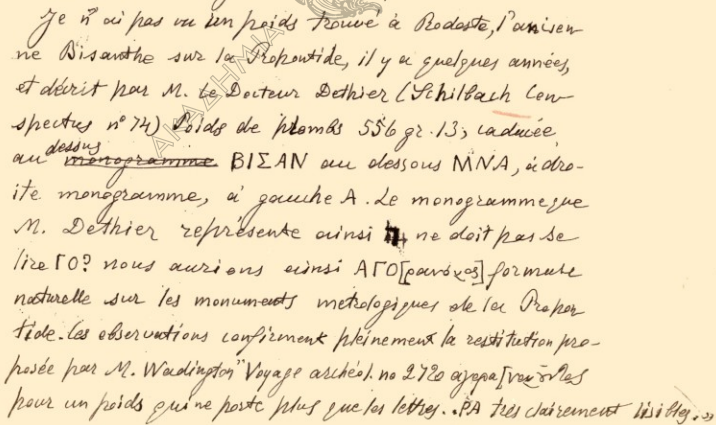 Je n'ai pas vu un poids trouvé à Rodosto, l'ancien-
ne Bisanthe sur la Propontide, il y a quelques années,
et décrit par M. le Docteur Dethier (Schilbach Con-
spectus nº 74) Poids de plombs 556 gr. 13; caducée
au dessus monogramme ΒΙΣΑΝ au dessous ΜΝΑ, à dro-
ite monogramme, à gauche Α. Le monogramme que
M. Dethier représente ainsi ne doit pas se
lire ΓΟ? nous aurions ainsi ΑΓΟ[ρανόμος] formule
naturelle sur les monuments metrologiques de la Propon
tide. Les observations confirment pleinement la restitution pro-
posée par M. Wadington "Voyage archéol. no 2720 αγορα[νομοῦντος
pour un poids qui ne porte plus que les lettres. .ΡΑ très clairement lisibles.»